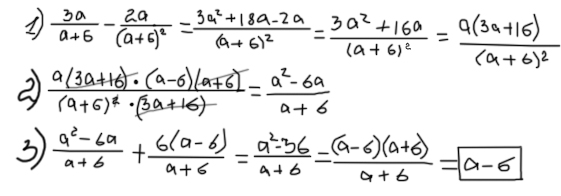 1) 3a/(a+6) - 2a/(a+6)² = (3a²+18a-2a)/(a+6)² = (3a²+16a)/(a+6)² = a(3a+16)/(a+6)²
2) a(3a+16)·(a-6)(a+6)/((a+6)²·(3a+16)) = (a²-6a)/(a+6)
3) (a²-6a)/(a+6) + 6(a-6)/(a+6) = (a²-36)/(a+6) = (a-6)(a+6)/(a+6) = a-6